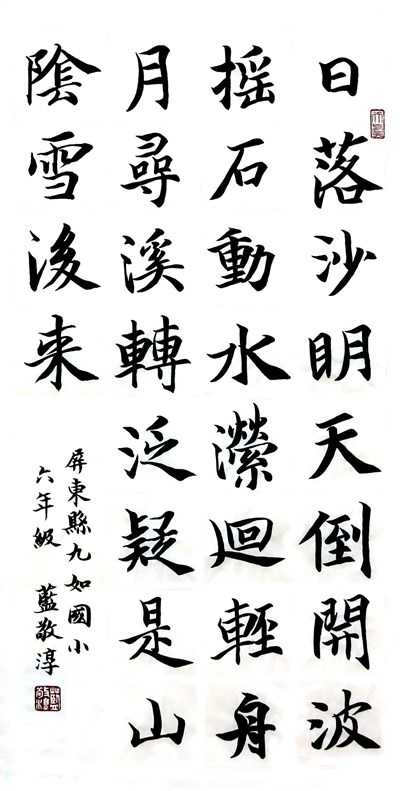 日落沙明天倒開波
搖石動水瀠迴輕舟
月尋溪轉泛疑是山
陰雪後来
屏東縣九如國小
六年級 藍敬淳